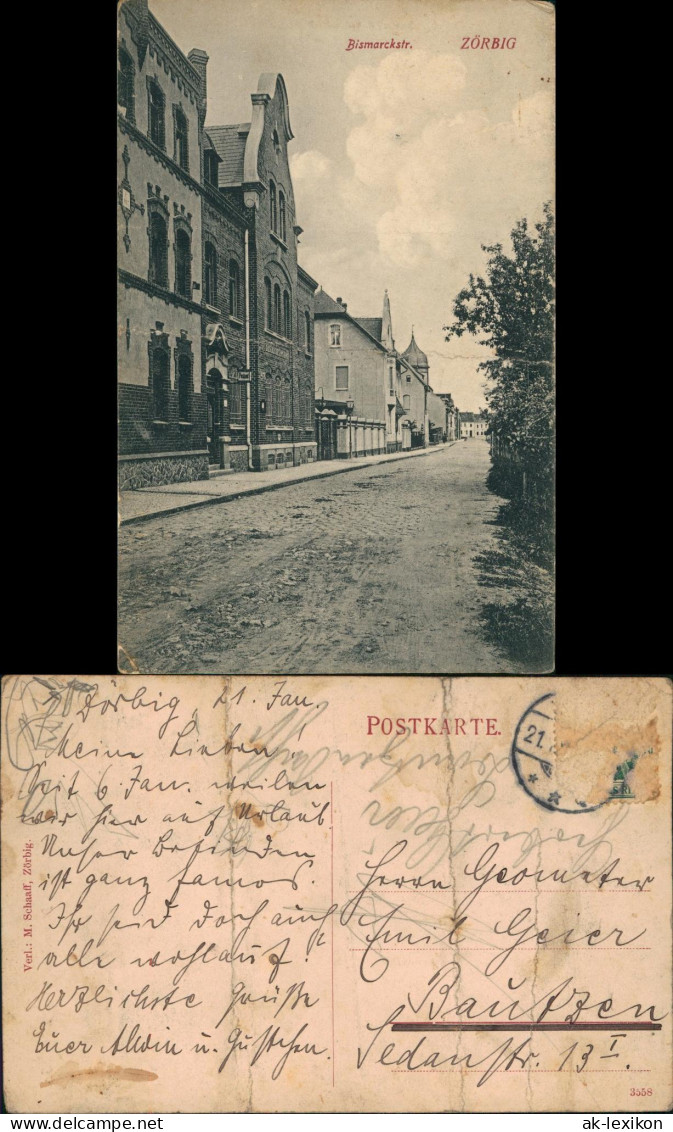 Bismarckstr. ZÖRBIG
Zörbig, 21. Jan.
Meine Lieben!
Seit 6. Jan. weilen
wir hier auf Urlaub
Unser Befinden
ist ganz famos.
Ihr seid doch auch
alle wohlauf?
Herzlichste Grüße
Euer Alwin u. Gustchen.
Verl.: M. Schaaff, Zörbig.
POSTKARTE.
21.
Herrn Geometer
Emil Geier
Bautzen
Sedanstr. 13 I.
3558
ak-lexikon